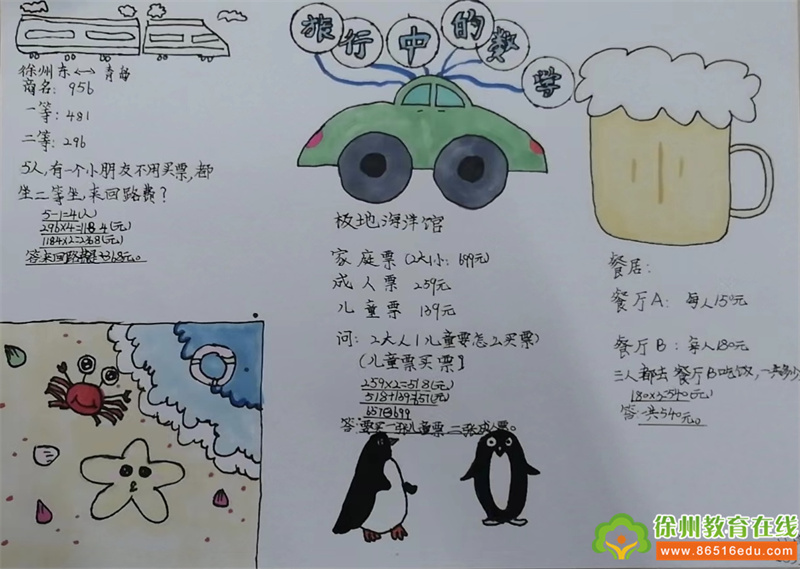 旅行中的数学
徐州东↔青岛
商务：956
一等：481
二等：296
5人，有一个小朋友不用买票，都
坐二等坐，来回路费？
5-1=4(人)
296×4=1184(元)
1184×2=2368(元)
极地海洋馆
家庭票(2大1小：699元)
成人票 259元
儿童票 139元
问：2大人1儿童要怎么买票)
(儿童票买票]
259×2=518(元)
518+139=657(元)
657<699
答：要买一张儿童票二张成人票。
餐居：
餐厅A：每人150元
餐厅B：每人180元
三人都去餐厅B吃饭，一共多少
180×3=540(元)
答：共540元。
徐州教育在线
www.86516edu.com